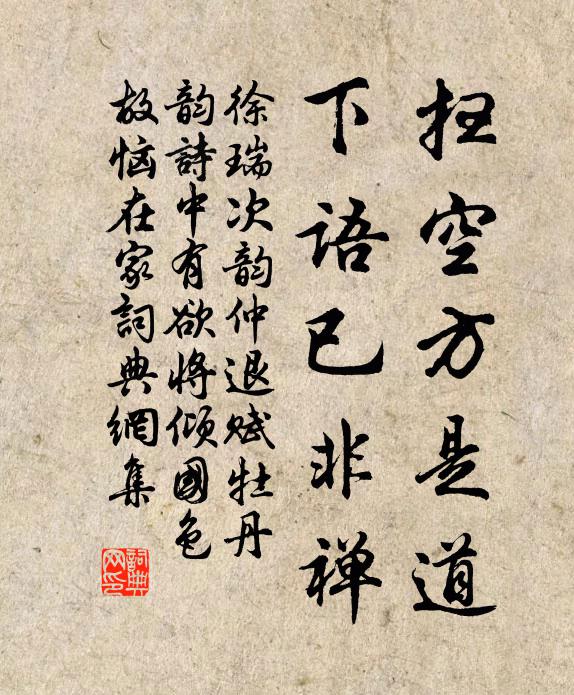 扫空方是道
下语已非禅
徐瑞次韵仲退赋牡丹
韵诗中有欲将倾國色
故恼在家詞典網集
詞典网印